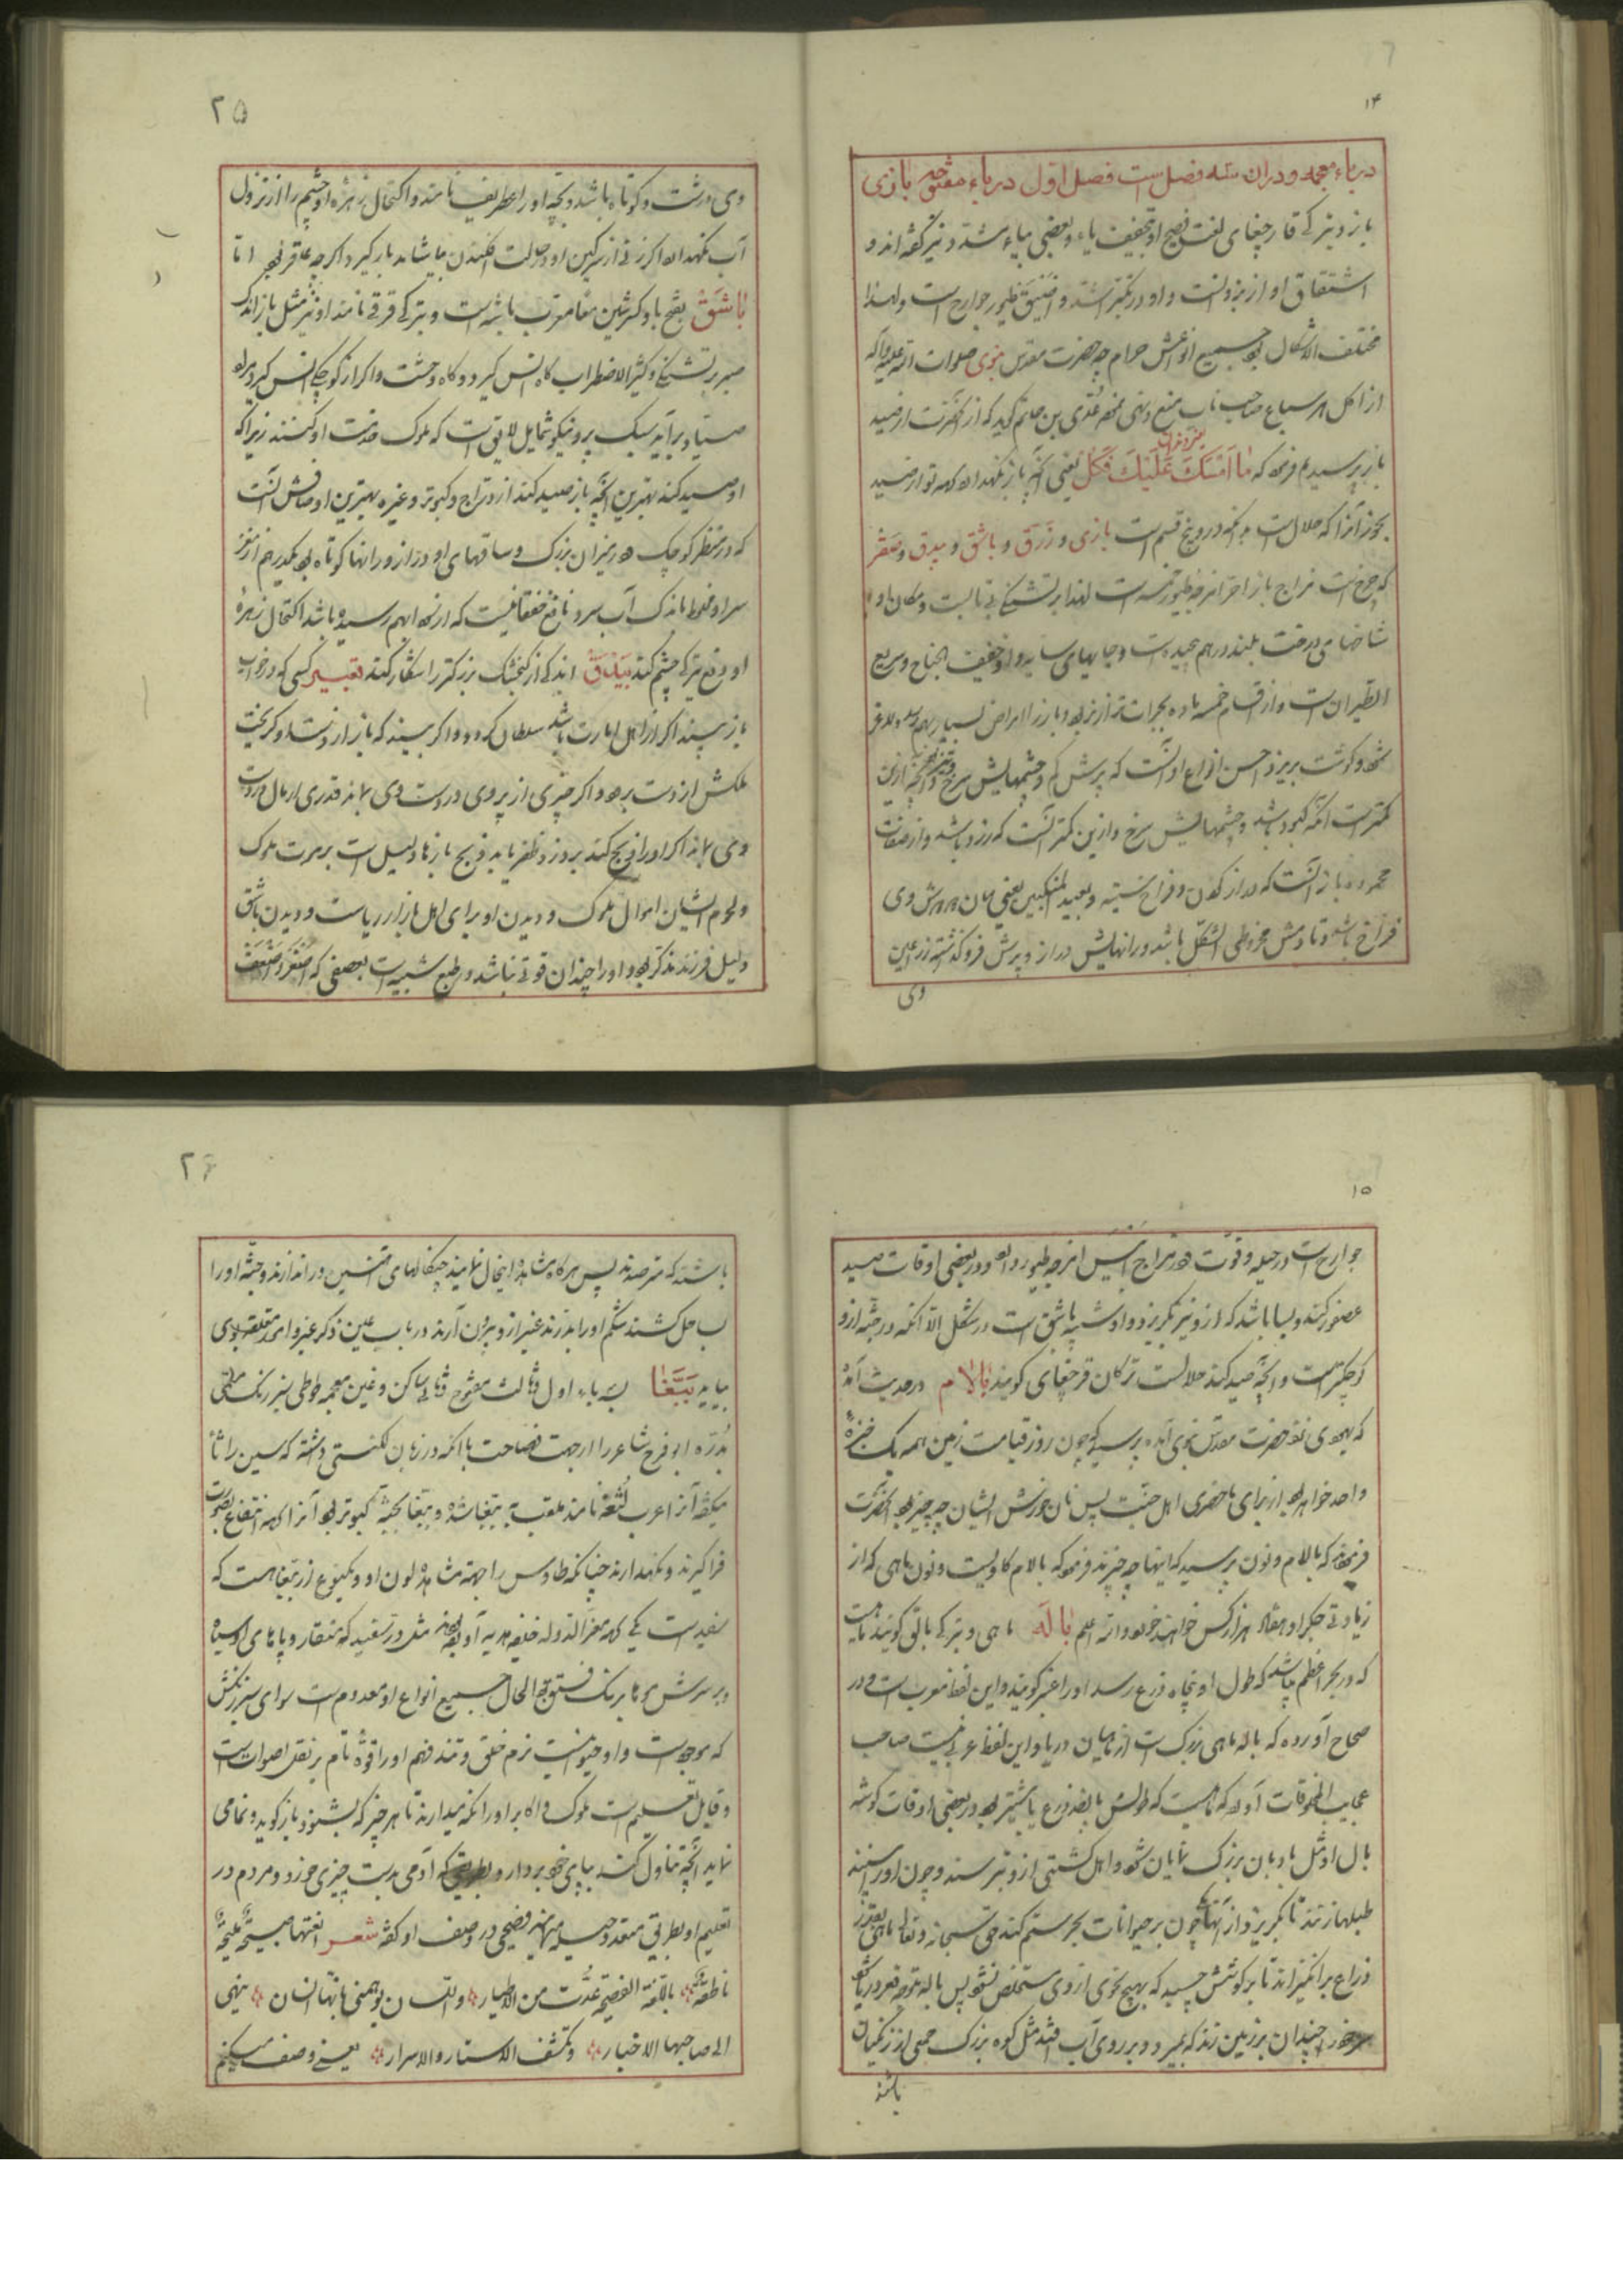 ۱۴
در باء معجمه و در ان سه فصل است فصل اول در باء مفتوحه بازی
باز و بترکی قارچغای لغت فصیح او بتخفیف یاء و بعضی بیاء مشدد نیز گفته اند و
اشتقاق او از بزوانست و او در تکبر اشد و اضیق طیور جوارح است و لهذا
مختلف الاشکال بود جمیع انواعش حرام چه حضرت مقدس نبوی صلوات الله علیه وآله
از اکل هر سباع صاحب ناب منع و نهی عدی بن حاتم گوید که از آنحضرت از صید
باز پرسیدم فرمود که ما اَمْسَكَ عَلَیْكَ فَكُل یعنی آنچه باز نگهدارد که تو از صید
بخور آنرا که حلال است و آنکه در وی پنج قسم است بازی و زرق و باشق و بیدق و صقر
که چرخ است مزاج باز احر امزجه طیور است لهذا بر تشنگی بی تابست و مکان او
شاخهای درخت بلند در هم پیچیده است و جایهای سایه دار و خفیف الجناح و سریع
الطیران است و از اقسام خمسه ماده بجرات تر از نر بود و باز را امراض بسیار بهم رسد و لاغر
شود و گوشت بریزد احسن انواع او آنست که پرش کم و چشمهایش سرخ و تیز بود و آنچه ازین
کمتر است آنکه کبود باشد و چشمهایش سرخ و ازین کمتر آنست که زرد باشد و از صفات
محموده باز آنست که دراز گردن و فراخ سینه و بعید المنکبین یعنی میان دو دوش وی
فراخ باشد و تا دمش مخروطی الشکل باشد و رانهایش دراز و پرش فرو گذشته زراعین
وی
۲۵
وی درشت و کوتاه باشد و بچه او را غطریف نامند و اکتحال زهره او چشم را از نزول
آب نگهدارد اگر زنی از سرگین او در حالت افکندن بیاشامد بار گیرد اگر چه عاقر بود اما
بَاشَقْ بفتح با و کسر شین معا معرب باشه است و بترکی قرقی نامند او نیز مثل باز اندک
صبر بر تشنگی و کثیر الاضطراب گاه انس گیرد و گاه وحشت و اگر از کوچکی انس گیرد مراو
صیاد بر آید سبک پر و نیکو شمایل لایق است که ملوک خدمت او کنند زیرا که
او صید کند بهترین آنچه باز صید کند از دراج و کبوتر و غیره بهترین اوصافش آنست
که در منظر کوچک و در میزان بزرگ و ساقهای او دراز و رانها کوتاه بود یکدرهم از مغز
سر او مخلوط باندک آب سرد نافع خفقانیست که از سودا بهم رسیده باشد اکتحال زهرهٔ
او دفع تیرگی چشم کند بَیْدَقْ اندکی از گنجشک بزرگتر را شکار کند تعبیر کسی که در خواب
باز بیند اگر از اهل امارت باشد سلطان گردد و اگر بیند که باز از دست او گریخت
ملکش از دست برود و اگر چیزی از پر وی در دست وی ماند قدری از مال در دست
وی ماند اگر او را ذبح کند بر دزد ظفر یابد ذبح بازها دلیل است بر موت ملوک
و لحوم ایشان اموال ملوک و دیدن او برای اهل بازار ریاست و دیدن باشق
دلیل فرزند مذکر بود و او را چندان قوتی نباشد و طبع شبیه است بعصفی که اَصْغَر و اَضْعَفْ
۱۵
جوارح است در حیله و قوت و در مزاج ایبس امزجه طیور بود و در بعضی اوقات صید
عصفور کند و بسا باشد که از و نیز بگریزد و او شبیه باشق است در شکل الا آنکه در جثه از و
کوچکتر است و آنچه صید کند حلالست ترکان قرچغای گویند بَالَام در حدیث آمده
که یهودی نزد حضرت مقدس نبوی آمده پرسید که چون روز قیامت زمین همه یک خبزهٔ
واحد خواهد بود از برای ماحضری اهل جنت پس نان خورش ایشان چه چیز بود آنحضرت
فرمود که بالام و نون پرسید که اینها چه چیزند فرمود که بالام گاویست و نون ماهی که از
زیادتی جگر او هفتاد هزار کس خواهند خورد والله اعلم بَالَه ماهی و بترکی بالق گویند ماهیست
که در بحر اعظم باشد که طول او پنجاه ذرع رسد او را عنبر گویند و این لفظ معرب است و در
صحاح آورده که باله ماهی بزرگ است از ماهیان دریا و این لفظ عربی نیست صاحب
عجایب المخلوقات آورده که ماهیست که طولش پانصد ذرع یا بیشتر بود در بعضی اوقات گوشه
بال او مثل بادبان بزرگ نمایان شود و اهل کشتی از و بترسند و چون او را ببینند
طبلها زنند تا بگریزد از آنها و چون بر حیوانات بحر ستم کند حق سبحانه و تعالی ماهی بقدر
ذراع برانگیزاند تا بر گوشش چسبد که بهیچ نحوی از وی مستخلص نشود پس باله متوجه قعر دریا شود
و سر خود را چندان بر زمین زند که بمیرد و بر روی آب افتد مثل کوه بزرگ جمعی از زنگیان
باشند
۲۶
باشند که مترصدند پس هرگاه مشاهده اینحال نمایند چنگالهای آهنین در اندازند و جثه او را
بساحل کشند شکم او را بدرند عنبر از و بیرون آرند در باب عین ذکر عنبر و امور متعلقه بوی
بیاید بَبَّغَا بسه باء اول و ثالث مفتوح و ثانی ساکن و غین معجمه طوطی سبز رنگ ملقبی
بدره ابو الفرج شاعر را از جهت فصاحت با آنکه در زبان لکنتی داشته که سین را ثا
میگفته آنرا عرب لُثغه نامند ملقب به ببغا شده و ببغا بجثه کبوتر بود آنرا که انتفاع بصوت
فرا گیرند و نگهدارند چنانکه طاوس را بجهة مشاهده لون او و یکنوع از ببغا هست که
سفید است یکی که معز الدوله خلیفه هدیه آورده بودند مثل ورد سفید که منقار و پاهای او سیاه
و بر سرش موها برنگ فستق بود الحال جمیع انواع او معدوم است سوای سبز رنگش
که موجود است و او حیوانیست نرم خلق و تند فهم او را قوه تام بر نقل اصوات است
و قابل تعلیم است ملوک و اکابر او را نگه میدارند تا هر چیز که بشنود باز گوید و نمامی
نماید آنچه تناول کند بپای خود بردارد بطریق که آدمی بدست چیزی خورد و مردم در
تعلیم او بطریق متعدد حیله مینمایند فصیحی در وصف او گفته شعر الفتها صبیحةً ملیحةً
ناطقةً باللغة الفصیحة عُدَّت من الاطیار و اللسان یوهمنی بانها انسان ینهی
الی صاحبها الاخبار و تکشف الاستار و الاسرار یعنی وصف میکنم